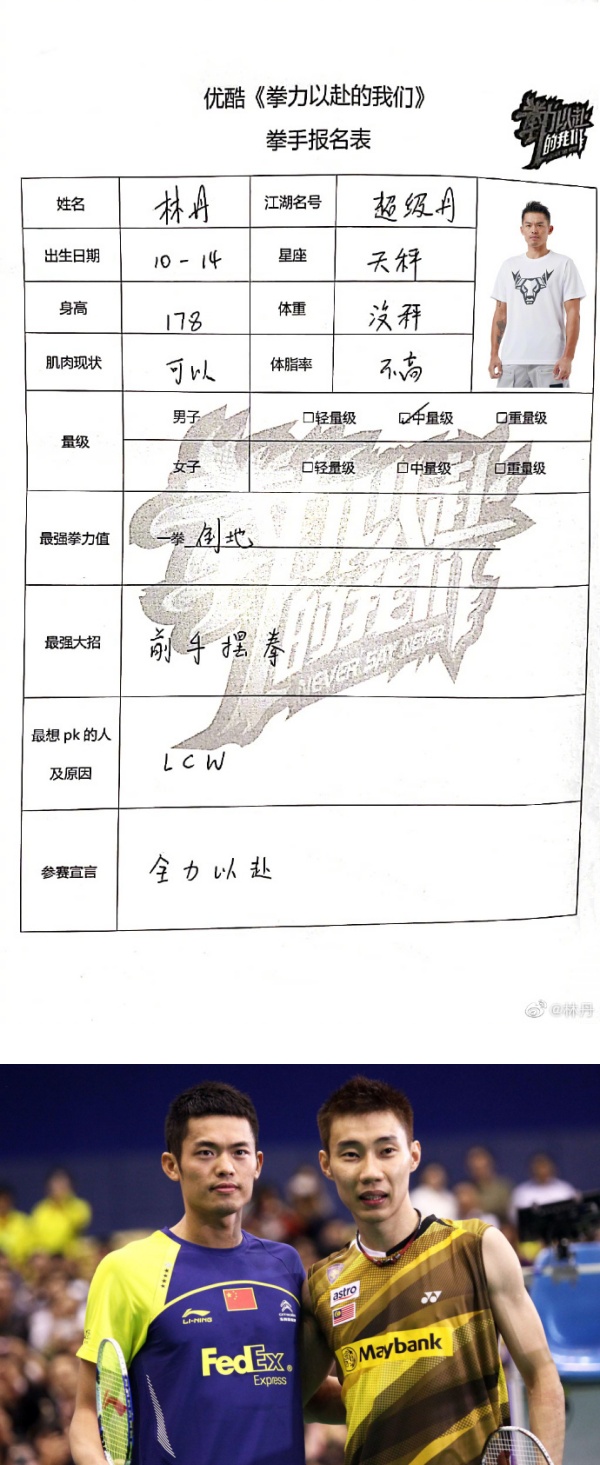 优酷《拳力以赴的我们》
拳手报名表
拳力以赴
的我们
姓名 林丹 江湖名号 超级丹
出生日期 10-14 星座 天秤
身高 178 体重 没秤
肌肉现状 可以 体脂率 不高
量级
男子 □轻量级 ☑中量级 □重量级
女子 □轻量级 □中量级 □重量级
最强拳力值 一拳 倒地
最强大招 前手摆拳
NEVER SAY NEVER
最想pk的人
及原因
LCW
参赛宣言 全力以赴
@林丹
LI-NING
FedEx
Express
astro
YONEX
Maybank